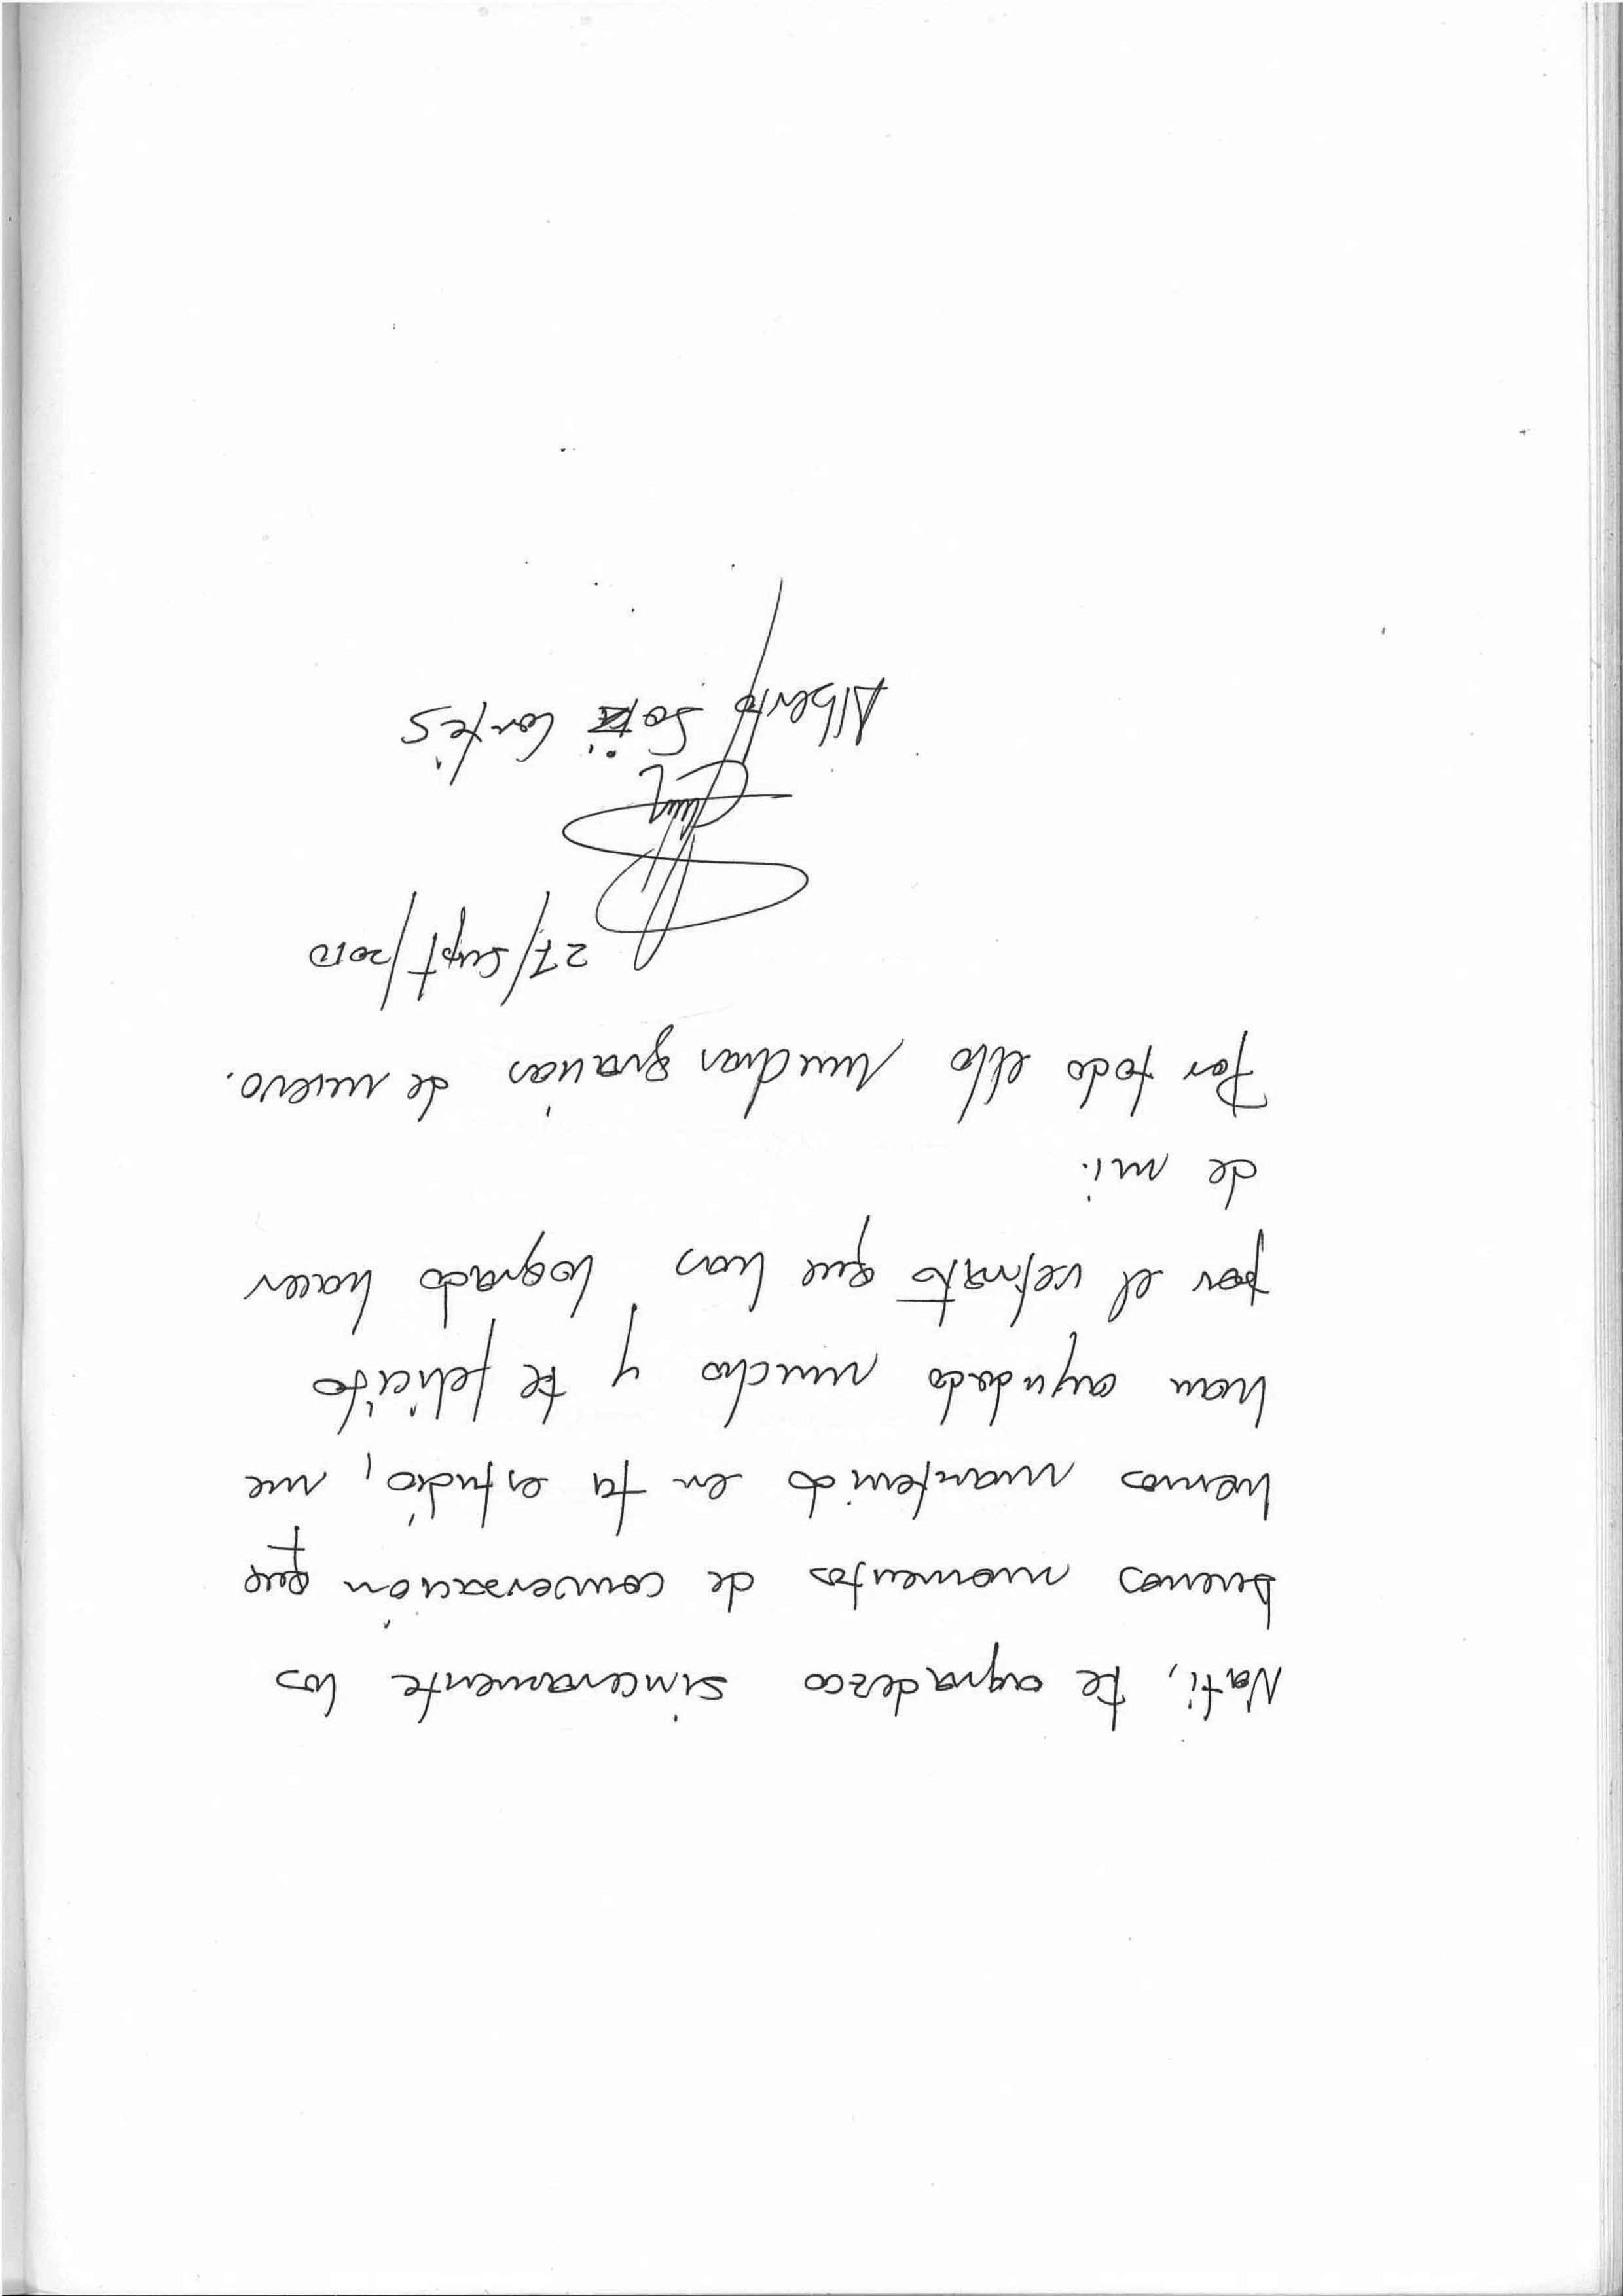 Nati, te agradezco sinceramente los
buenos momentos de conversación que
hemos mantenido en tu estudio, me
han ayudado mucho y te felicito
por el retrato que has logrado hacer
de mi.
Por todo ello muchas gracias de nuevo.
27/Sept/2010
Alberto Cortés